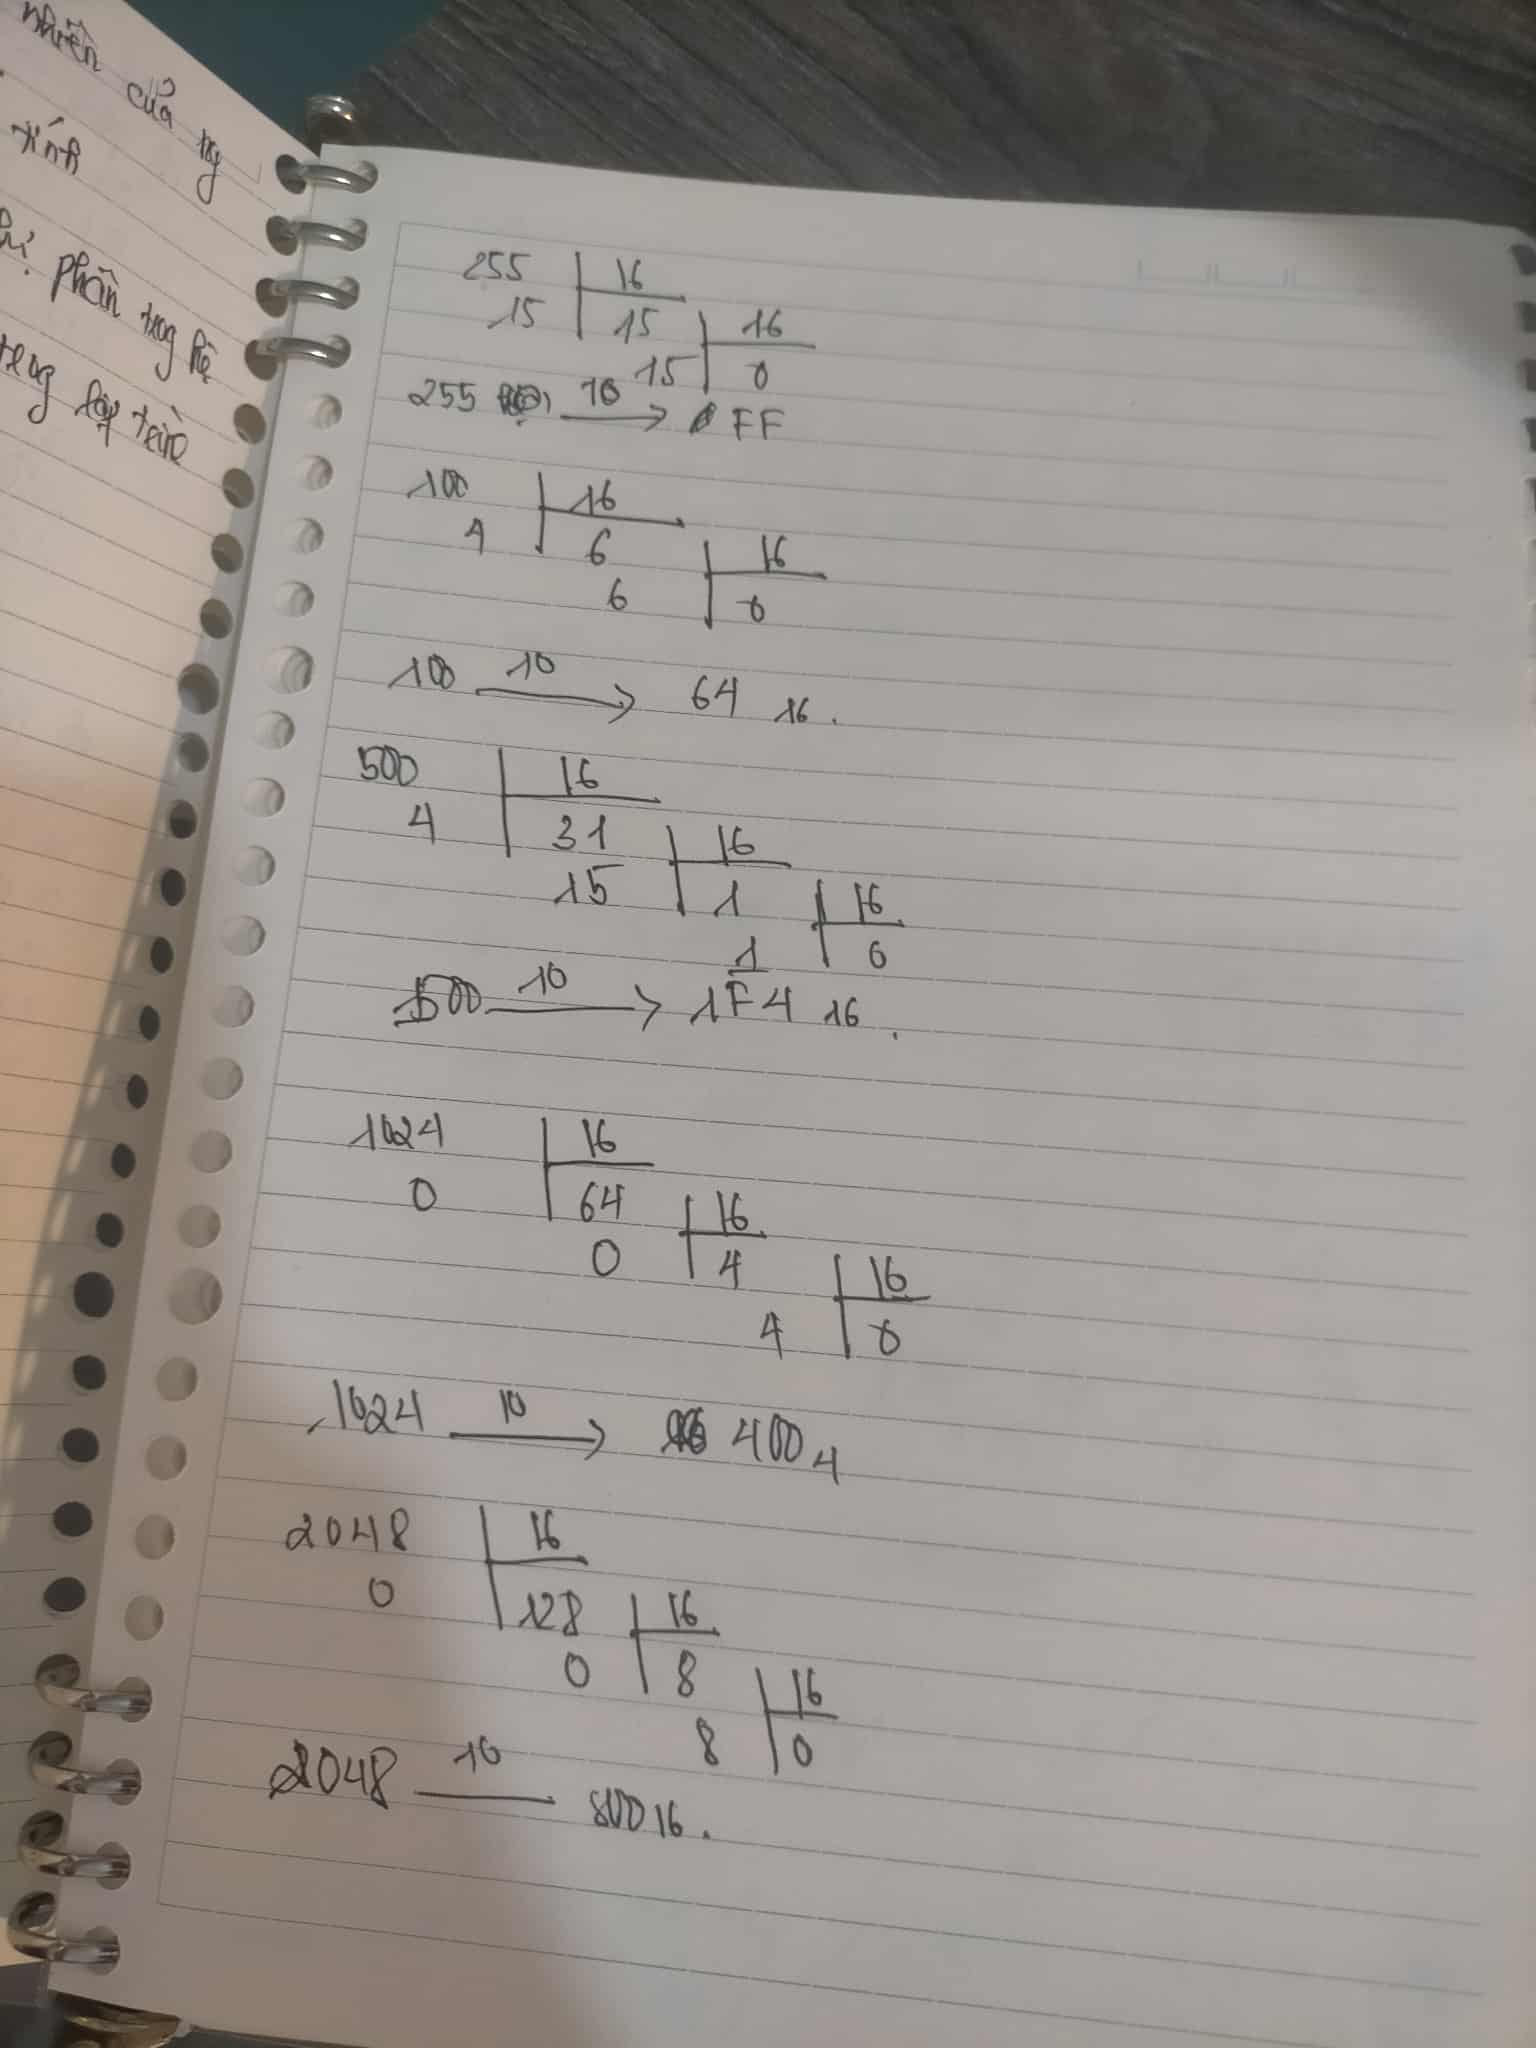 nhiên của ng
tính
phân trog hệ
trog lập trìn
255 16
15 15 16
15 0
255 10 → FF
100 16
4 6 16
6 0
100 10 → 64 16.
500 16
4 31 16
15 1 16
1 0
500 10 → 1F4 16.
1024 16
0 64 16
0 4 16
4 0
1024 10 → 400 4
2048 16
0 128 16
0 8 16
8 0
2048 10 800 16.